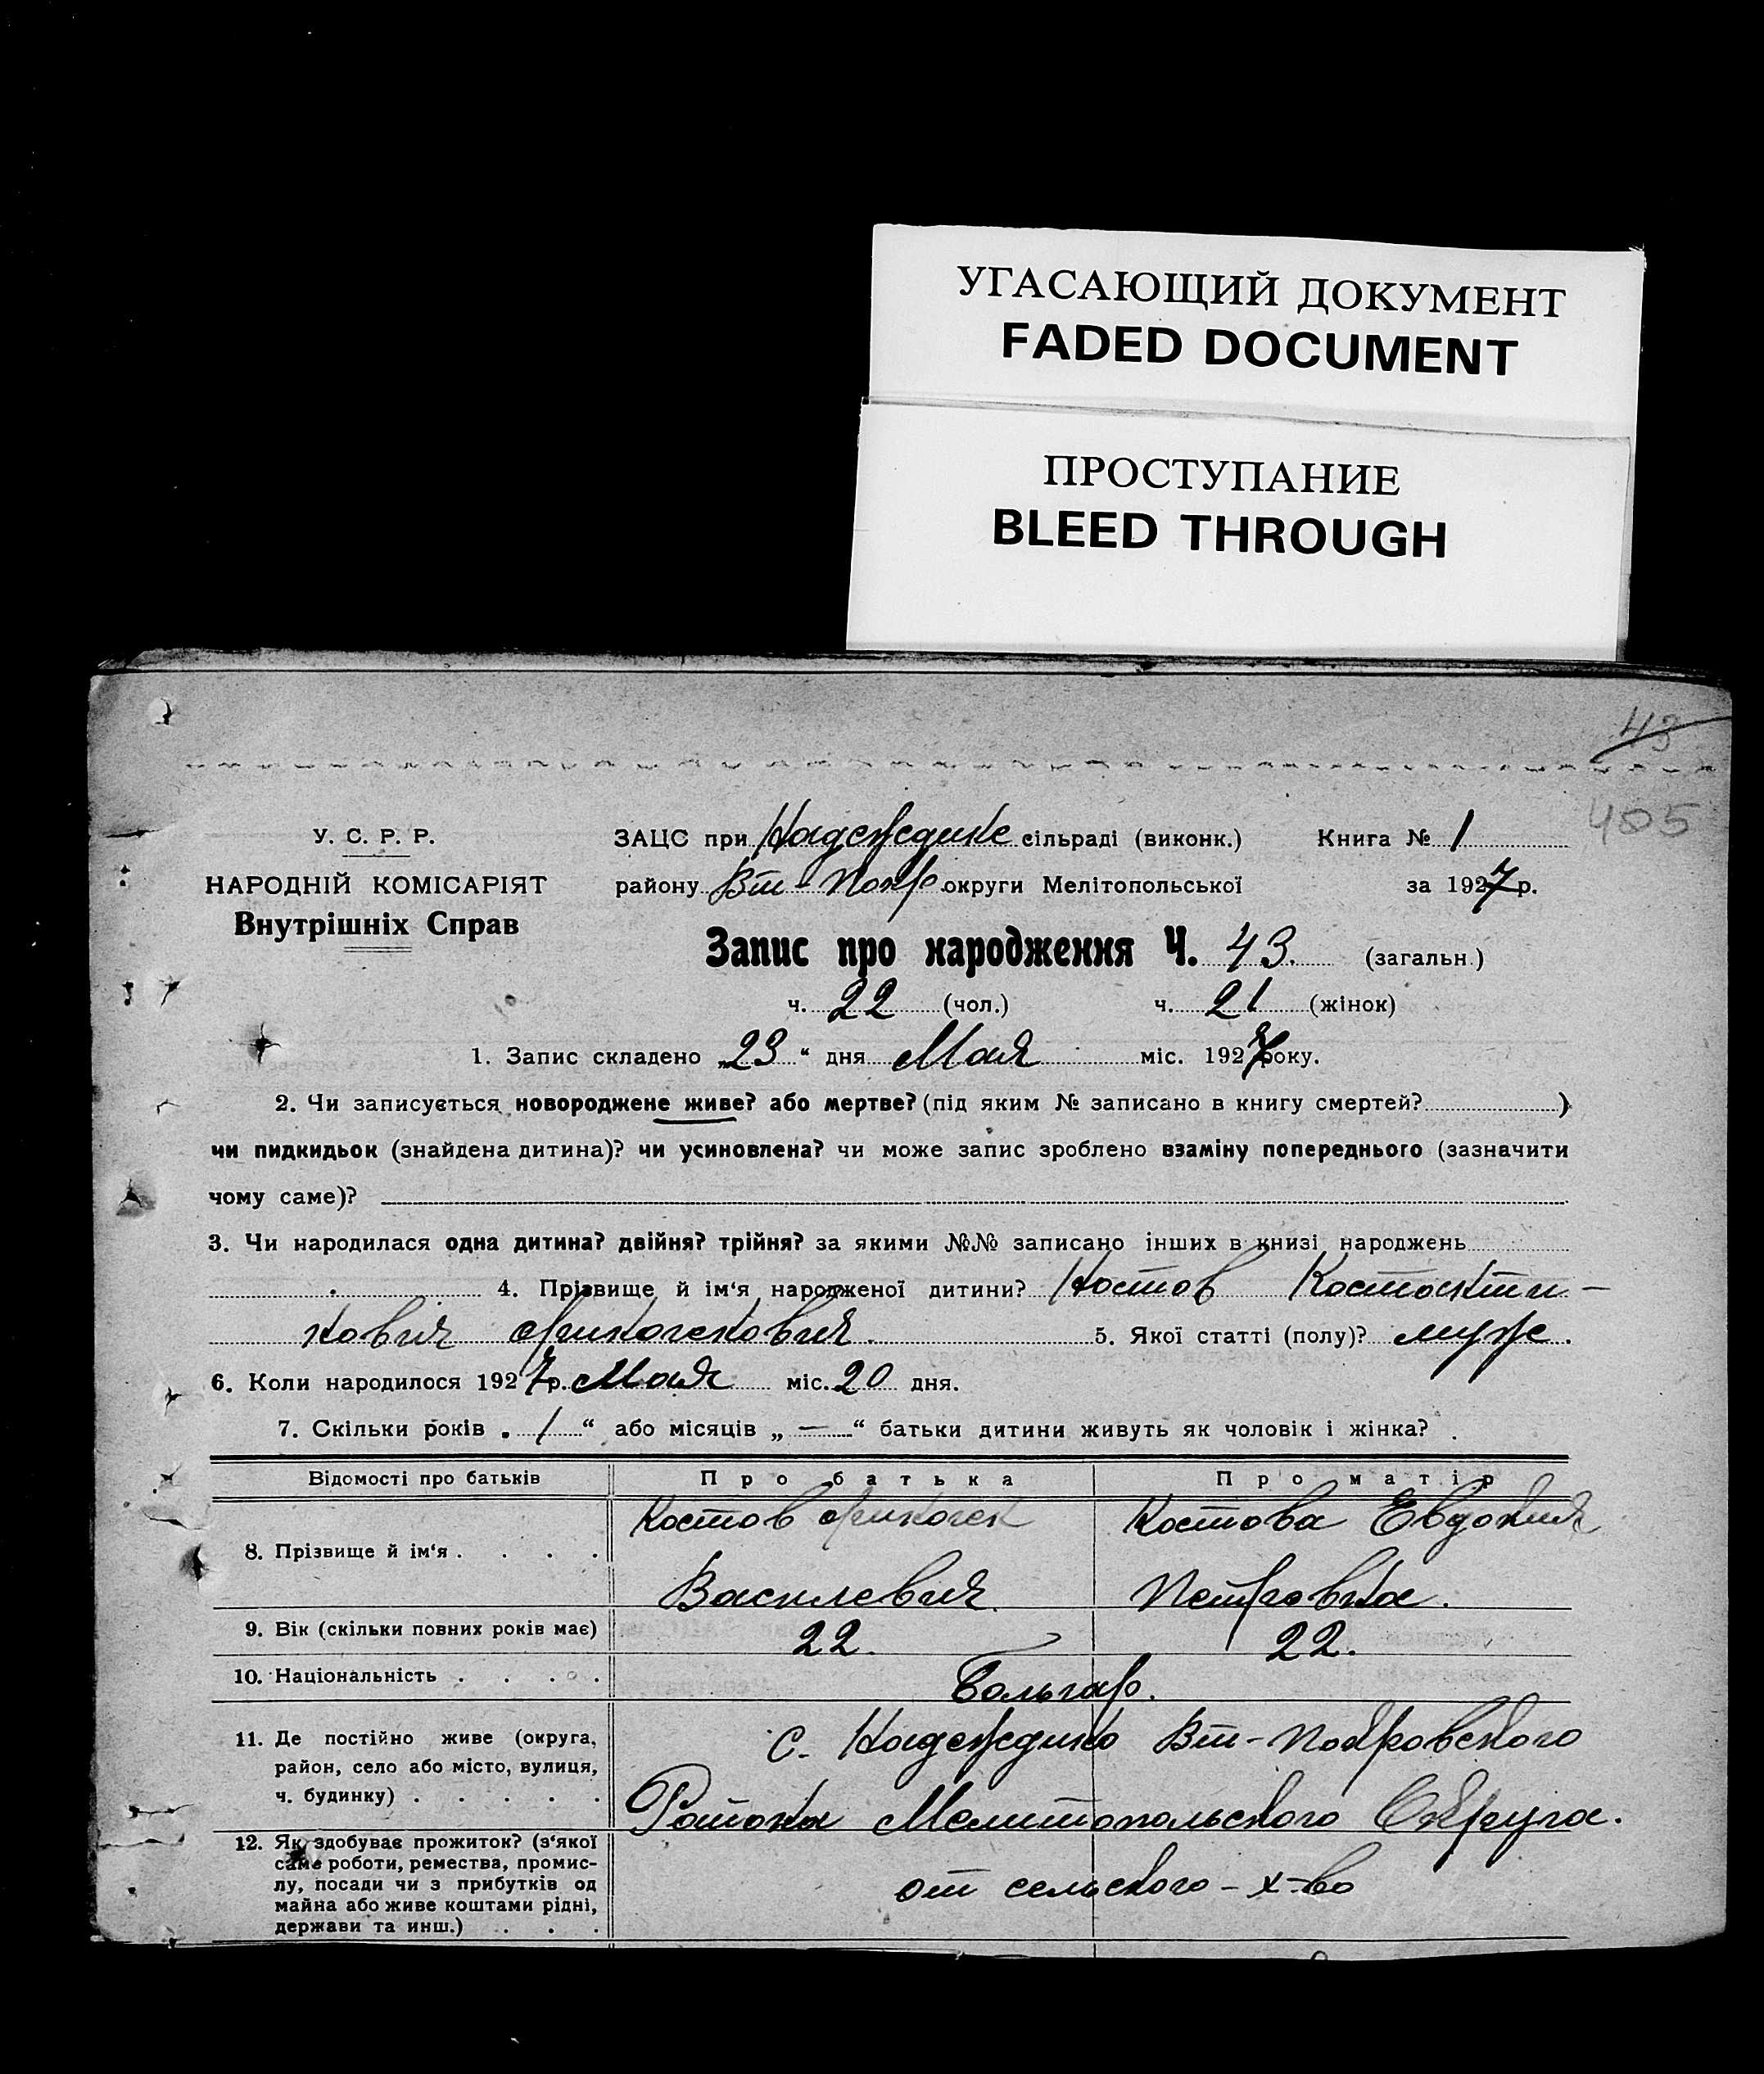 УГАСАЮЩИЙ ДОКУМЕНТ
FADED DOCUMENT
ПРОСТУПАНИЕ
BLEED THROUGH
43
405
У. С. Р. Р.
НАРОДНІЙ КОМІСАРІЯТ
Внутрішніх Справ
ЗАЦС при Надеждине сільраді (виконк.) Книга № 1
району Вт-Покр округи Мелітопольської за 1927 р.
Запис про народження Ч. 43. (загальн.)
ч. 22 (чол.) ч. 21 (жінок)
1. Запис складено „23“ дня Мая міс. 1927 року.
2. Чи записується новороджене живе? або мертве? (під яким № записано в книгу смертей? )
чи пидкидьок (знайдена дитина)? чи усиновлена? чи може запис зроблено взаміну попереднього (зазначити
чому саме)?
3. Чи народилася одна дитина? двійня? трійня? за якими №№ записано інших в книзі народжень
4. Прізвище й ім‘я народженої дитини? Костов
5. Якої статті (полу)? муж.
6. Коли народилося 1927 р. Мая міс. 20 дня.
7. Скільки років „ 1 “ або місяців „ — “ батьки дитини живуть як чоловік і жінка?
Відомості про батьків Про батька Про матір
Костов Костова Евдокия
8. Прізвище й ім‘я . . . .
Василевич Петровна.
9. Вік (скільки повних років має) 22. 22.
10. Національність . . . . Болгар.
11. Де постійно живе (округа, с. Надеждино Вт-Покровского
район, село або місто, вулиця,
ч. будинку) . . . . . Района Мелитопольского Округа.
12. Як здобуває прожиток? (з‘якої
саме роботи, ремества, промис-
лу, посади чи з прибутків од от сельского-х-во
майна або живе коштами рідні,
держави та инш.) . . .